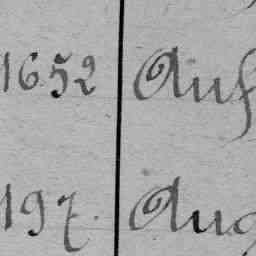 1652 Auf
197. Aug